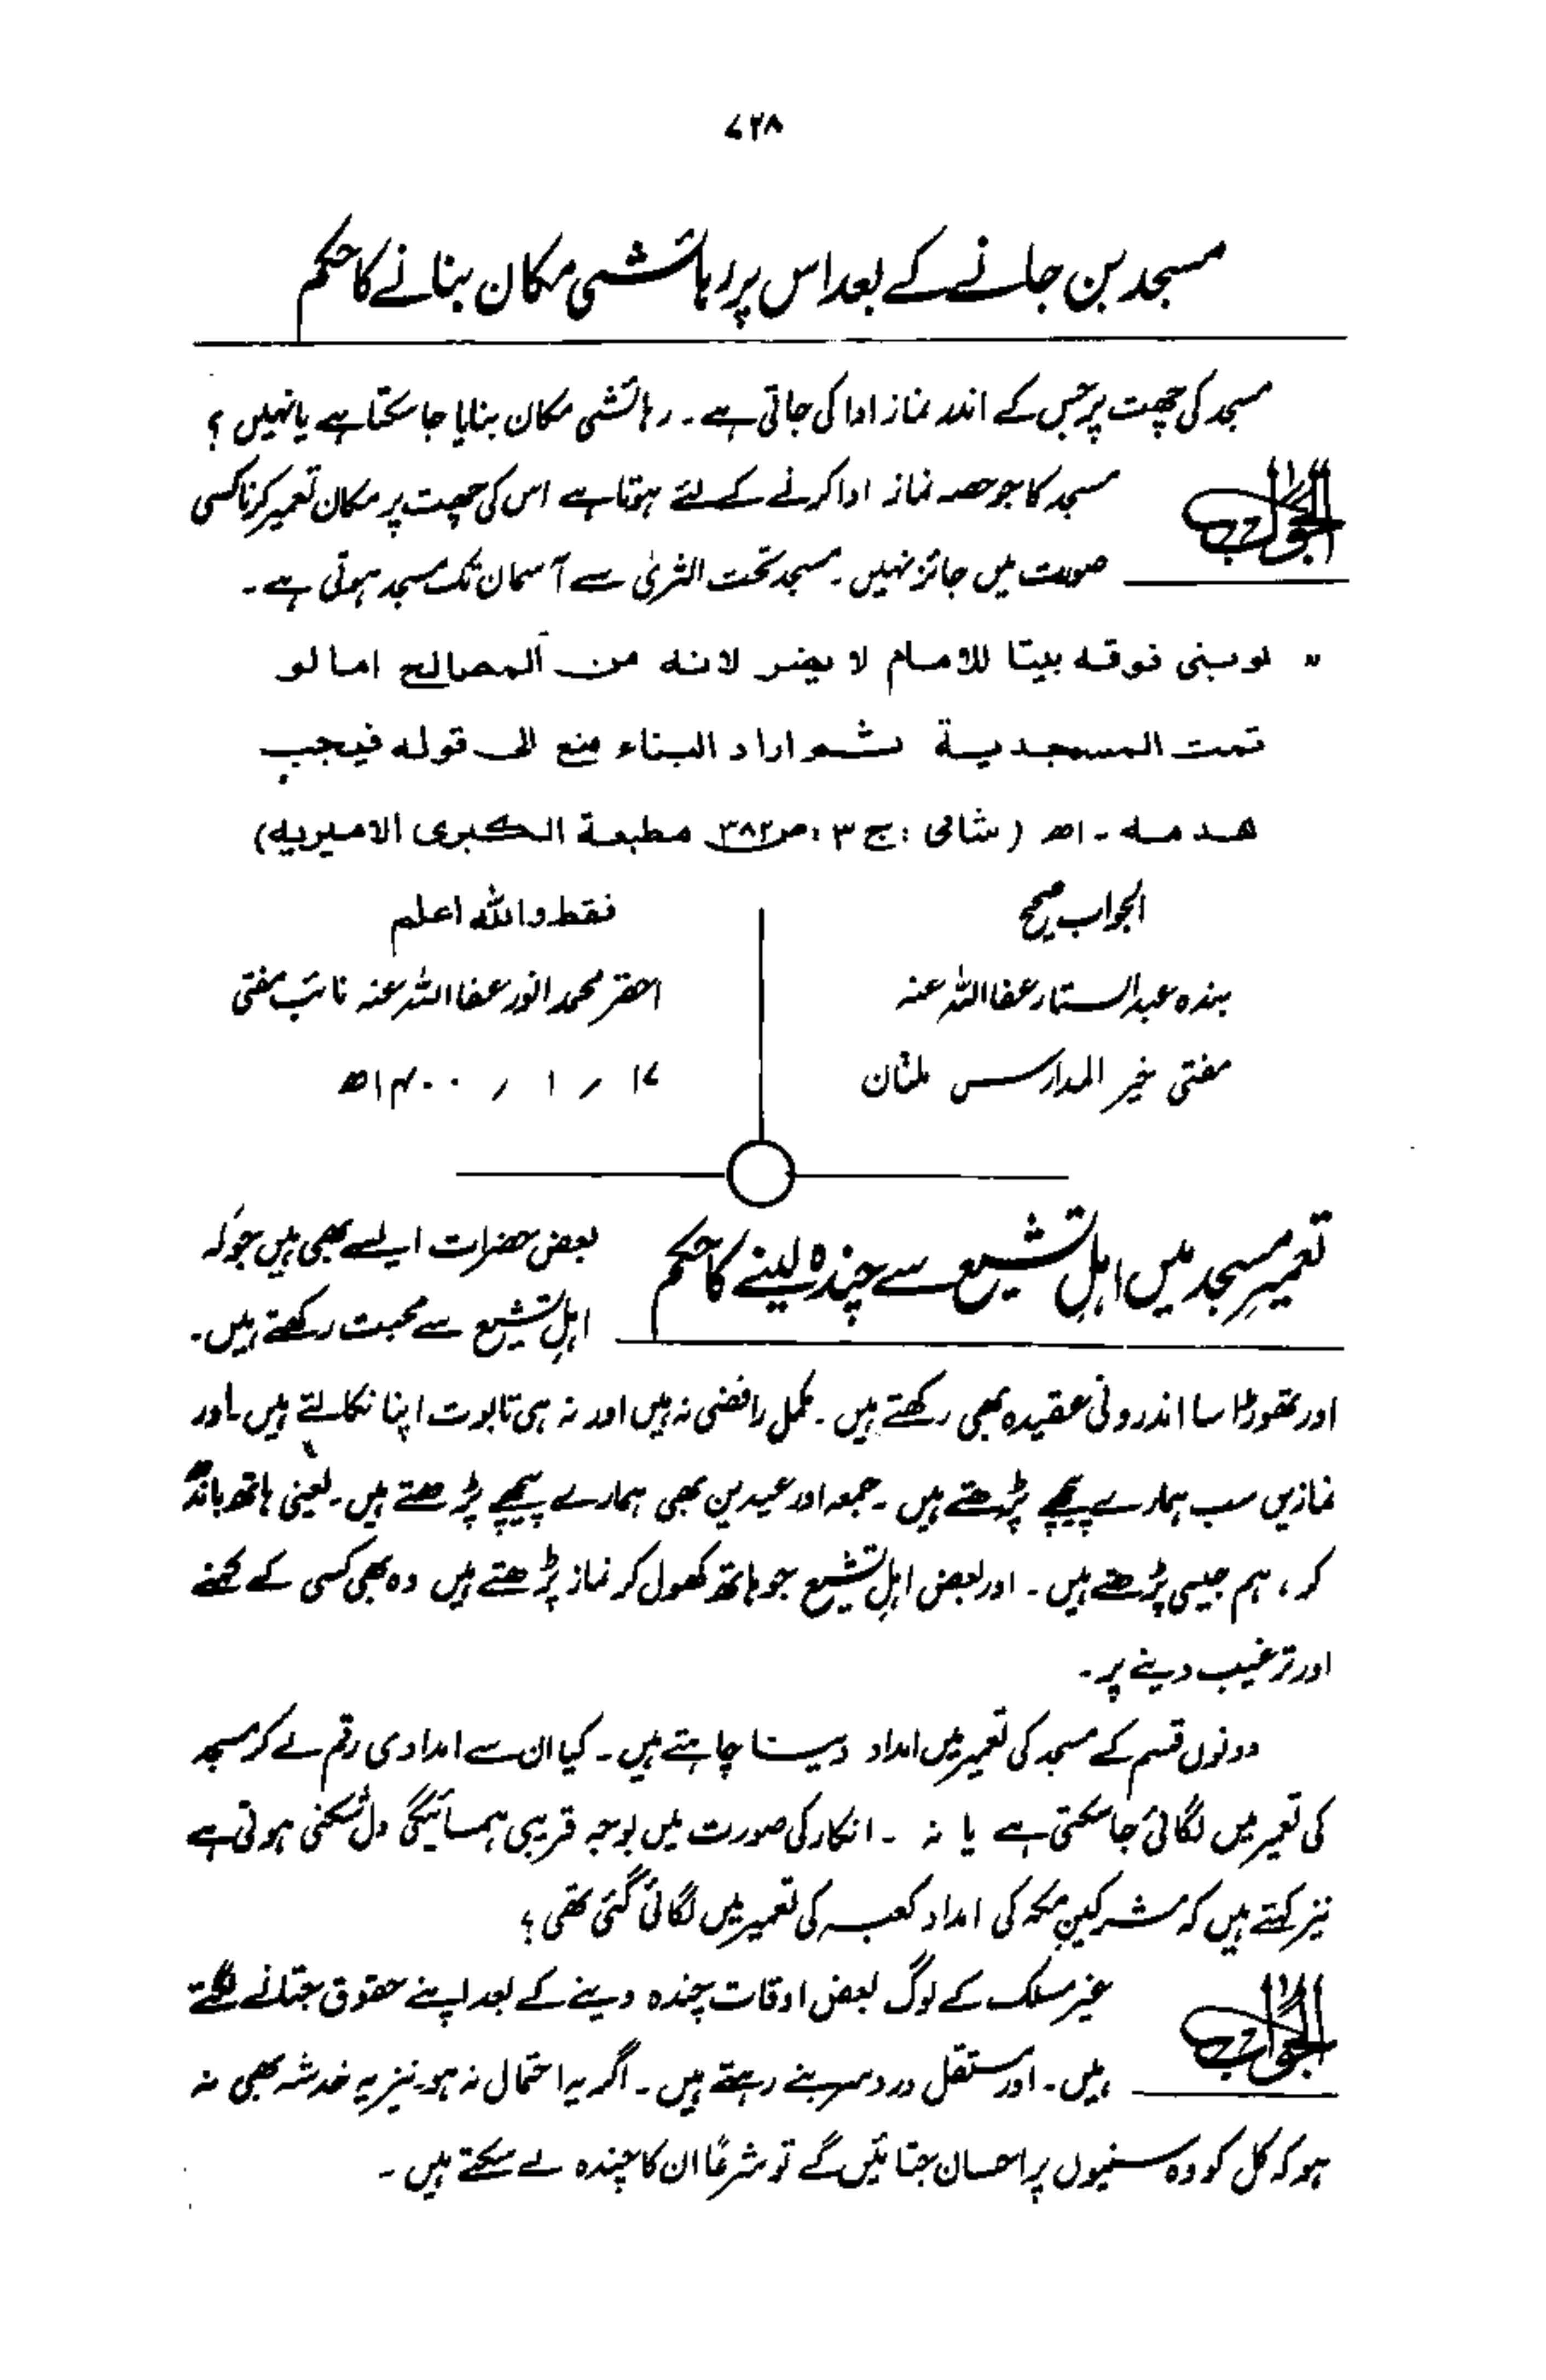 ۷۲۸
مسجد بن جانے کے بعد اس پر رہائشی مکان بنانے کا حکم
مسجد کی چھت پر جس کے اندر نماز ادا کی جاتی ہے۔ رہائشی مکان بنایا جا سکتا ہے یا نہیں ؟
الجواب
مسجد کا جو حصہ نماز ادا کرنے کے لئے ہوتا ہے اس کی چھت پر مکان تعمیر کرنا کسی
صورت میں جائز نہیں۔ مسجد تحت الثریٰ سے آسمان تک مسجد ہوتی ہے۔
" لو بنی فوقه بیتا للامام لا یضر لانه من المصالح اما لو
تمت المسجدیة ثم اراد البناء منع الی قوله فیجب
هدمه ۔ اھ (شامی : ج ۳ : ص ۳۸۲ مطبعة الکبری الامیریه)
الجواب صحیح
بندہ عبدالستار عفا اللہ عنہ
مفتی خیر المدارس ملتان
فقط واللہ اعلم
احقر محمد انور عفا اللہ عنہ نائب مفتی
۱۷ / ۱ / ۱۴۰۰ھ
تعمیرِ مسجد میں اہلِ تشیع سے چندہ لینے کا حکم
بعض حضرات ایسے بھی ہیں جو کہ
اہلِ تشیع سے محبت رکھتے ہیں۔
اور تھوڑا سا اندرونی عقیدہ بھی رکھتے ہیں۔ مکمل رافضی نہ ہیں اور نہ ہی تابوت اپنا نکالتے ہیں۔ اور
نمازیں سب ہمارے پیچھے پڑھتے ہیں۔ جمعہ اور عیدین بھی ہمارے پیچھے پڑھتے ہیں۔ یعنی ہاتھ باندھ
کر ، ہم جیسی پڑھتے ہیں۔ اور بعض اہلِ تشیع جو ہاتھ کھول کر نماز پڑھتے ہیں وہ بھی کسی کے کہنے
اور ترغیب دینے پر۔
دونوں قسم کے مسجد کی تعمیر میں امداد دینا چاہتے ہیں۔ کیا ان سے امدادی رقم لے کر مسجد
کی تعمیر میں لگائی جا سکتی ہے یا نہ ۔ انکار کی صورت میں بوجہ قریبی ہمسائیگی دل شکنی ہوتی ہے
نیز کہتے ہیں کہ مشرکینِ مکہ کی امداد کعبہ کی تعمیر میں لگائی گئی تھی ؟
الجواب
غیر مسلک کے لوگ بعض اوقات چندہ دینے کے بعد اپنے حقوق جتلانے لگتے
ہیں۔ اور مستقل دردِ سر بنے رہتے ہیں۔ اگر یہ احتمال نہ ہو۔ نیز یہ خدشہ بھی نہ
ہو کہ کل کو وہ سنیوں پر احسان جتائیں گے تو شرعًا ان کا چندہ لے سکتے ہیں۔